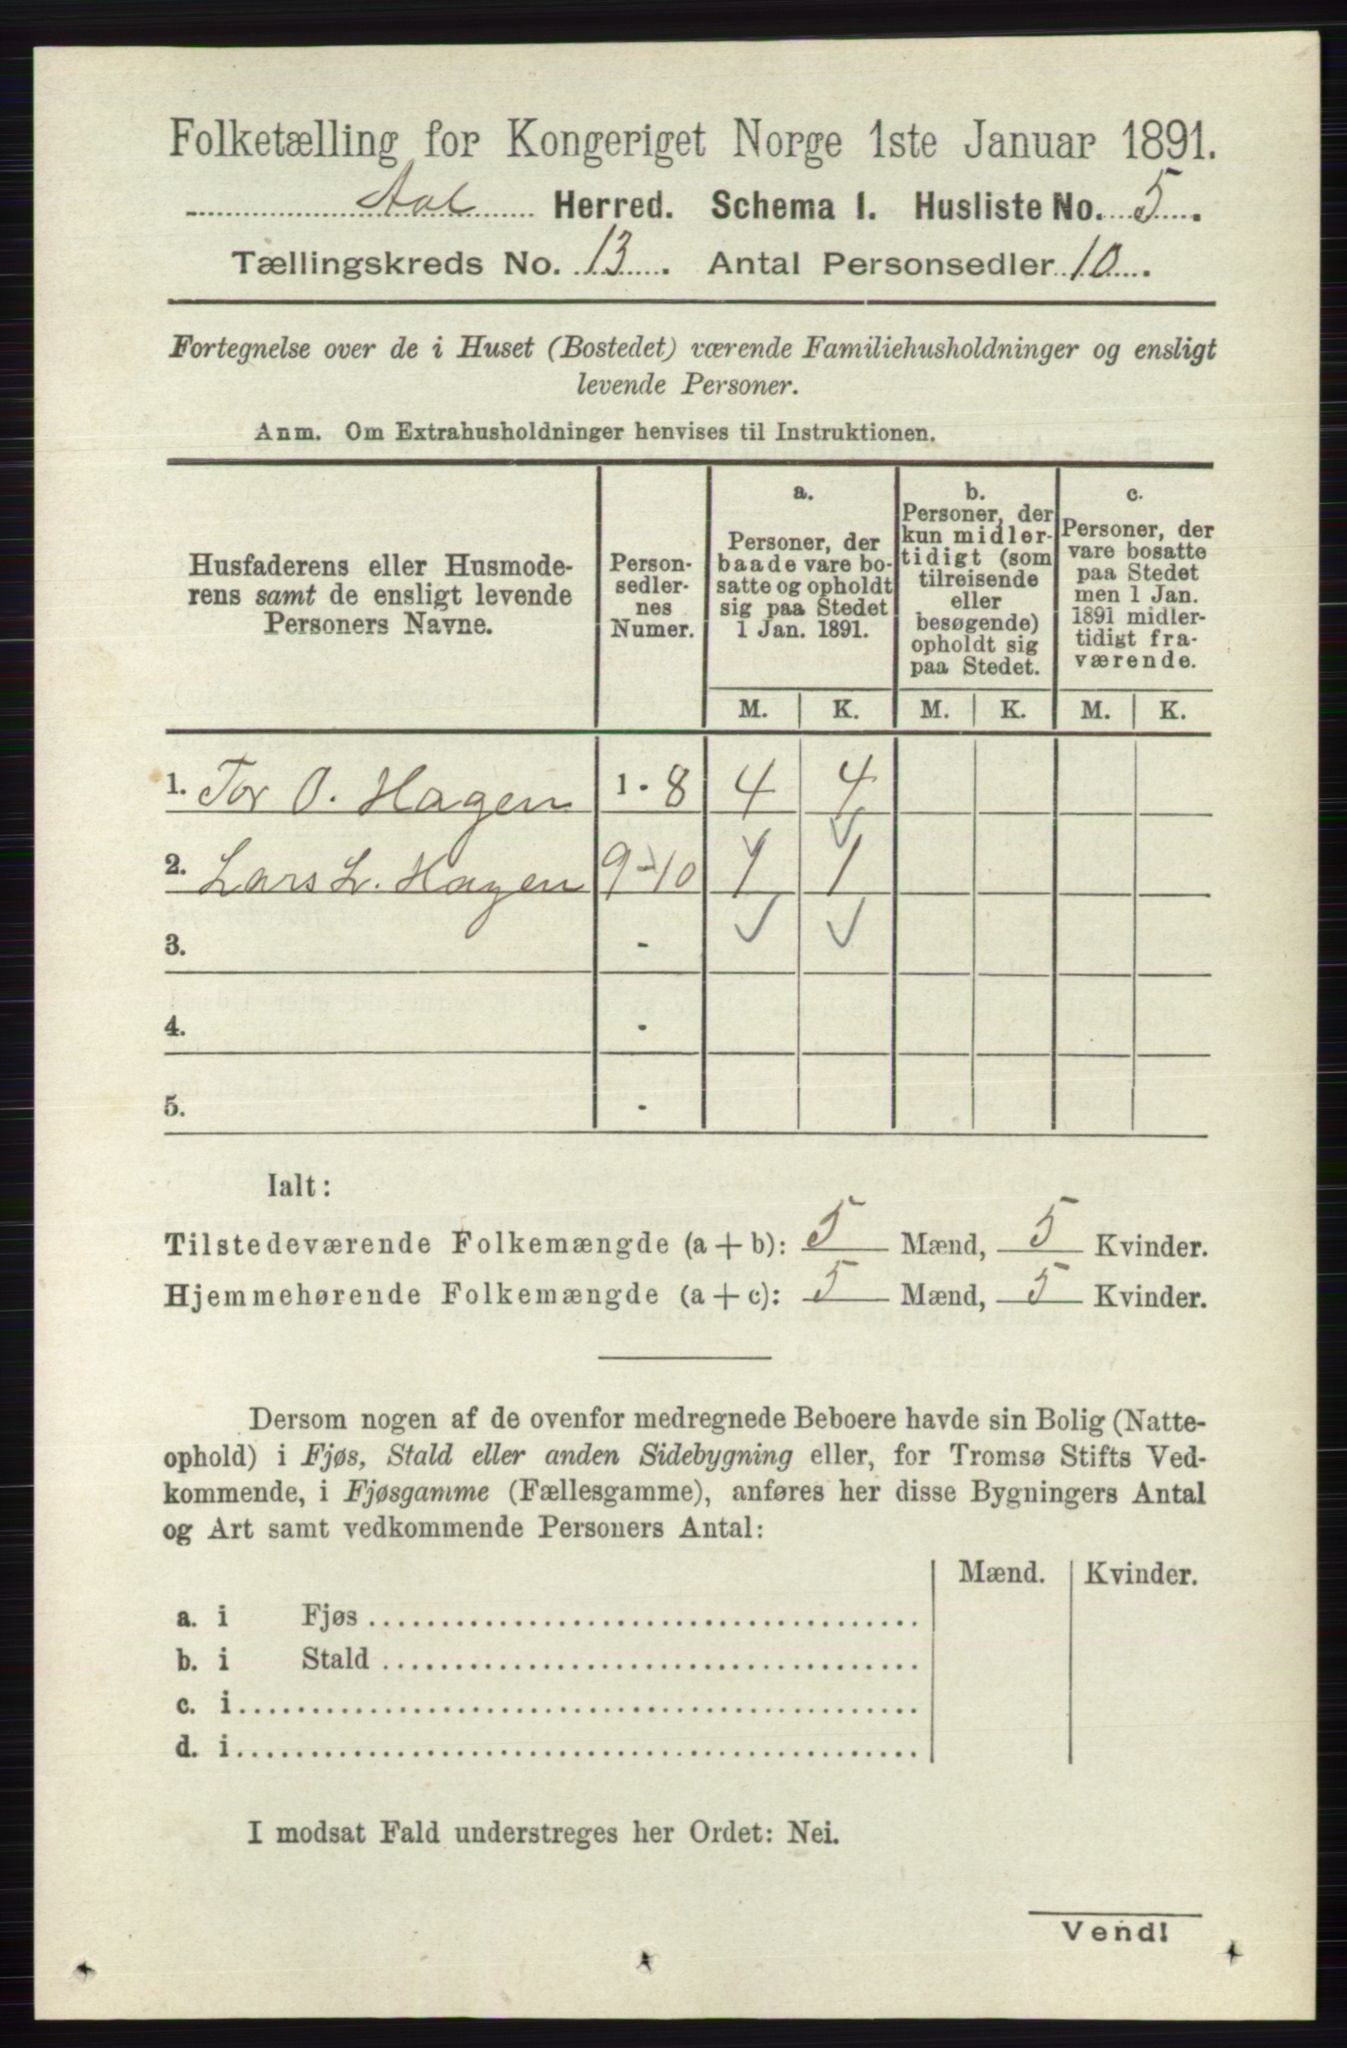 Folketælling for Kongeriget Norge 1ste Januar 1891.
Aal Herred. Schema I. Husliste No. 5.
Tællingskreds No. 13. Antal Personsedler 10.
Fortegnelse over de i Huset (Bostedet) værende Familiehusholdninger og ensligt
levende Personer.
Anm. Om Extrahusholdninger henvises til Instruktionen.
Husfaderens eller Husmode-
rens samt de ensligt levende
Personers Navne.
Person-
sedler-
nes
Numer.
a.
Personer, der
baade vare bo-
satte og opholdt
sig paa Stedet
1 Jan. 1891.
b.
Personer, der
kun midler-
tidigt (som
tilreisende
eller
besøgende)
opholdt sig
paa Stedet.
c.
Personer, der
vare bosatte
paa Stedet
men 1 Jan.
1891 midler-
tidigt fra-
værende.
M. K. M. K. M. K.
1. Tor O. Hagen 1 - 8 4 4
2. Lars L. Hagen 9-10 1 1
3. -
4. -
5. -
Ialt:
Tilstedeværende Folkemængde (a + b): 5 Mænd, 5 Kvinder.
Hjemmehørende Folkemængde (a + c): 5 Mænd, 5 Kvinder.
Dersom nogen af de ovenfor medregnede Beboere havde sin Bolig (Natte-
ophold) i Fjøs, Stald eller anden Sidebygning eller, for Tromsø Stifts Ved-
kommende, i Fjøsgamme (Fællesgamme), anføres her disse Bygningers Antal
og Art samt vedkommende Personers Antal:
Mænd. Kvinder.
a. i Fjøs
b. i Stald
c. i
d. i
I modsat Fald understreges her Ordet: Nei.
Vend!